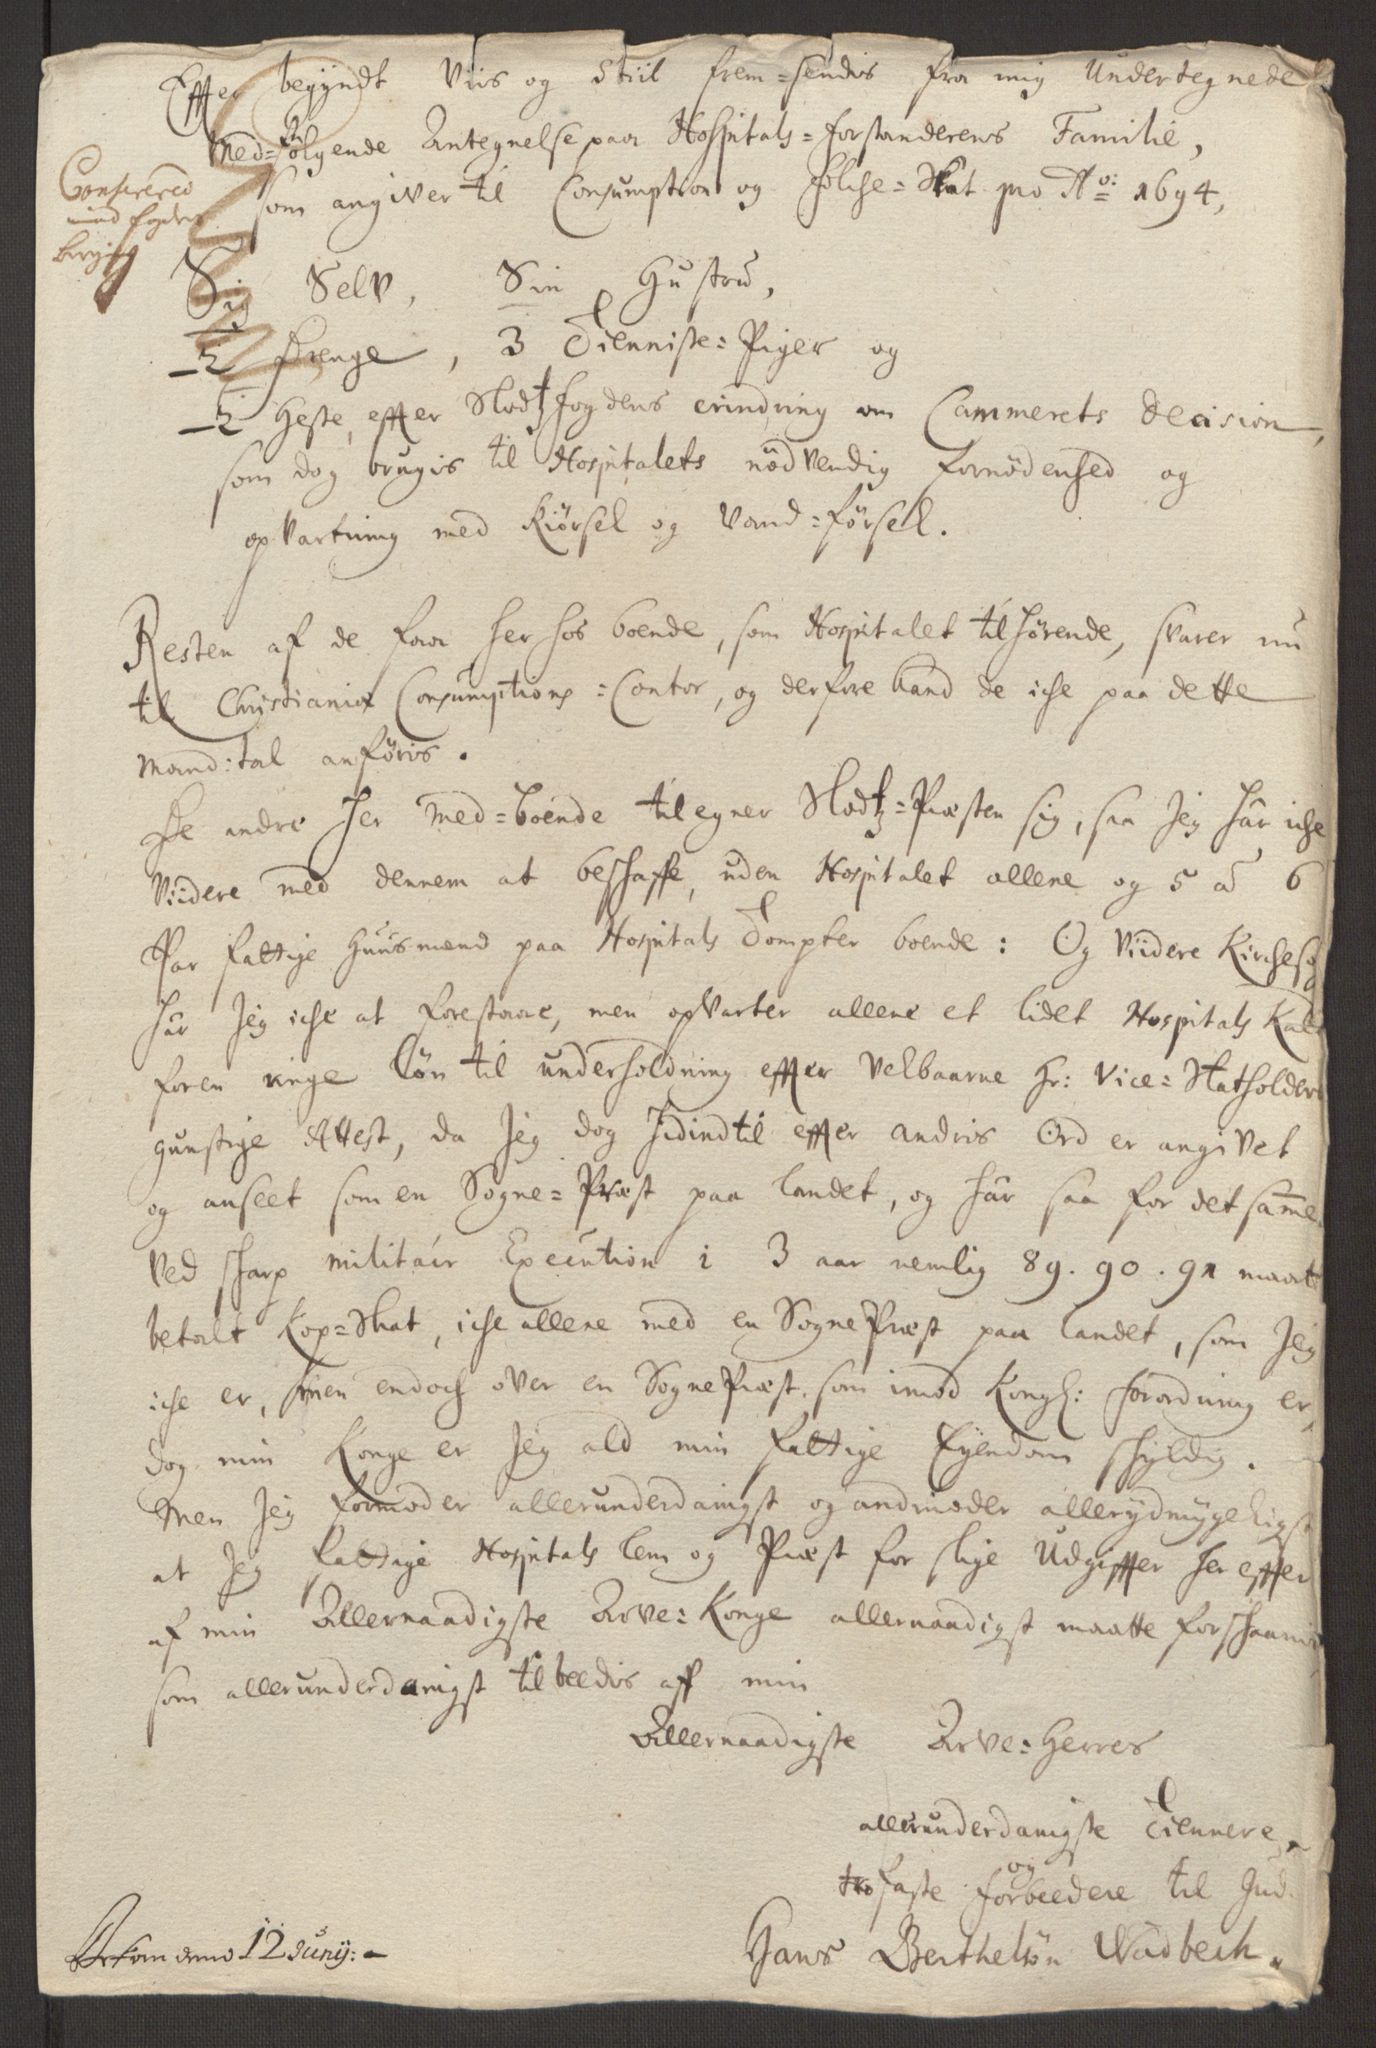 Effter begyndt Viis og Stiil frem=sendes fra mig Undertegnede
Med=følgende Antegnelse paa Hospitals=forstanderens Familie,
som angiver til Consumption og Folche=Skat pro Ao: 1694,
Confereret
med fogdens
Sig Selv, Sin Hustru,
2 Drenge, 3 Tienniste=Piger og
2 Heste, effter Slodtzfogdens erindring om Cammerets Decision,
som dog brugis til Hospitalets nødvendig fornødenhed og
opvartning med Kiørsel og Vand=førsel.
Resten af de faa her hos boende, som Hospitalet tilhørende, svarer nu
til Christiania Consumptions=Contor, og derfore kand de iche paa dette
Mand=tal anføris.
De andre her med=boende tilegner Slodtz=Præsten sig, saa Jeg har iche
Viidere med dennem at beschaffe, uden Hospitalet allene og 5 a 6
Par fattige Huusmænd paa Hospitals Tompter boende: Og Viidere Kirchesog
har Jeg iche at forestaae, men opvarter allene et lidet Hospitals Kald
for en ringe løn til underholdning effter Velbaarne Hr: Vice=Statholders
gunstige Attest, da Jeg dog hidindtil effter andris Ord er angivet
og anseet som en Sogne=Præst paa landet, og har saa for det samme
ved sharp militair Execution i 3 aar nemlig 89. 90. 91 maat
betalt Kop=Skat, iche allene med en SognePræst paa landet, som Jeg
iche er, men endoch over en SognePræst, som imod Kongl: forordning er,
dog min Konge er Jeg ald min fattige Eyendom schyldig.
Men Jeg formoder allerunderdanigst og andmoder allerydmygeligst
at Jeg fattige Hospitals lem og Præst for slige Udgiffter her effter
af min Allernaadigste Arve=Konge allernaadigst maatte forschaanis
som allerunderdanigst tilbeedis aff min
Allernaadigste Arve=Herres
allerunderdanigste Tiennere,
og
tro faste forbeedere til Gud.
Hans Berthelsøn Wadbech.
Ankom dend 12 Junij: